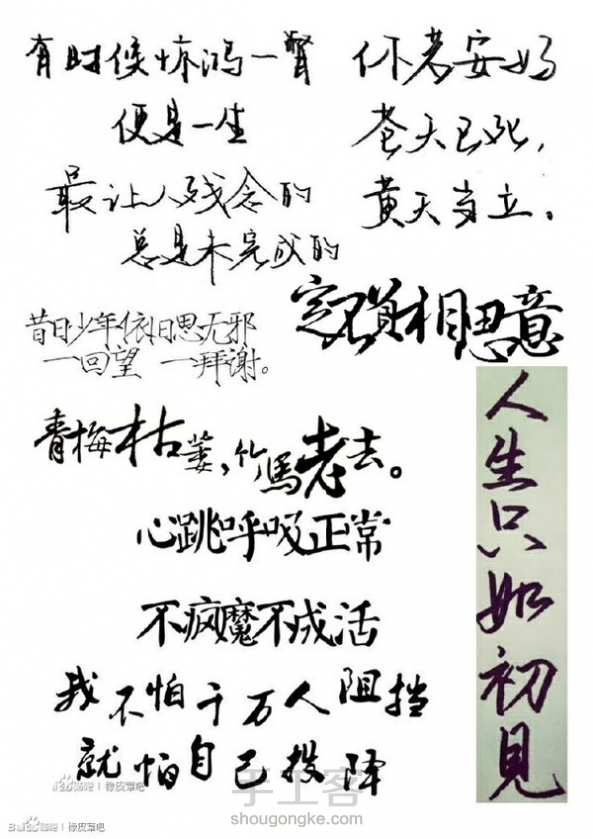 有时候惊鸿一瞥
便是一生
你若安好
苍天已死，
黄天当立。
最让人残念的
总是未完成的
定不负相思意
昔日少年依旧思无邪
一回望 一拜谢。
人生只如初見
青梅枯萎，竹馬老去。
心跳呼吸正常
不疯魔不成活
我不怕千万人阻挡
就怕自己投降
贴吧 | 橡皮章吧
贴吧 | 橡皮章吧
手工客
shougongke.com